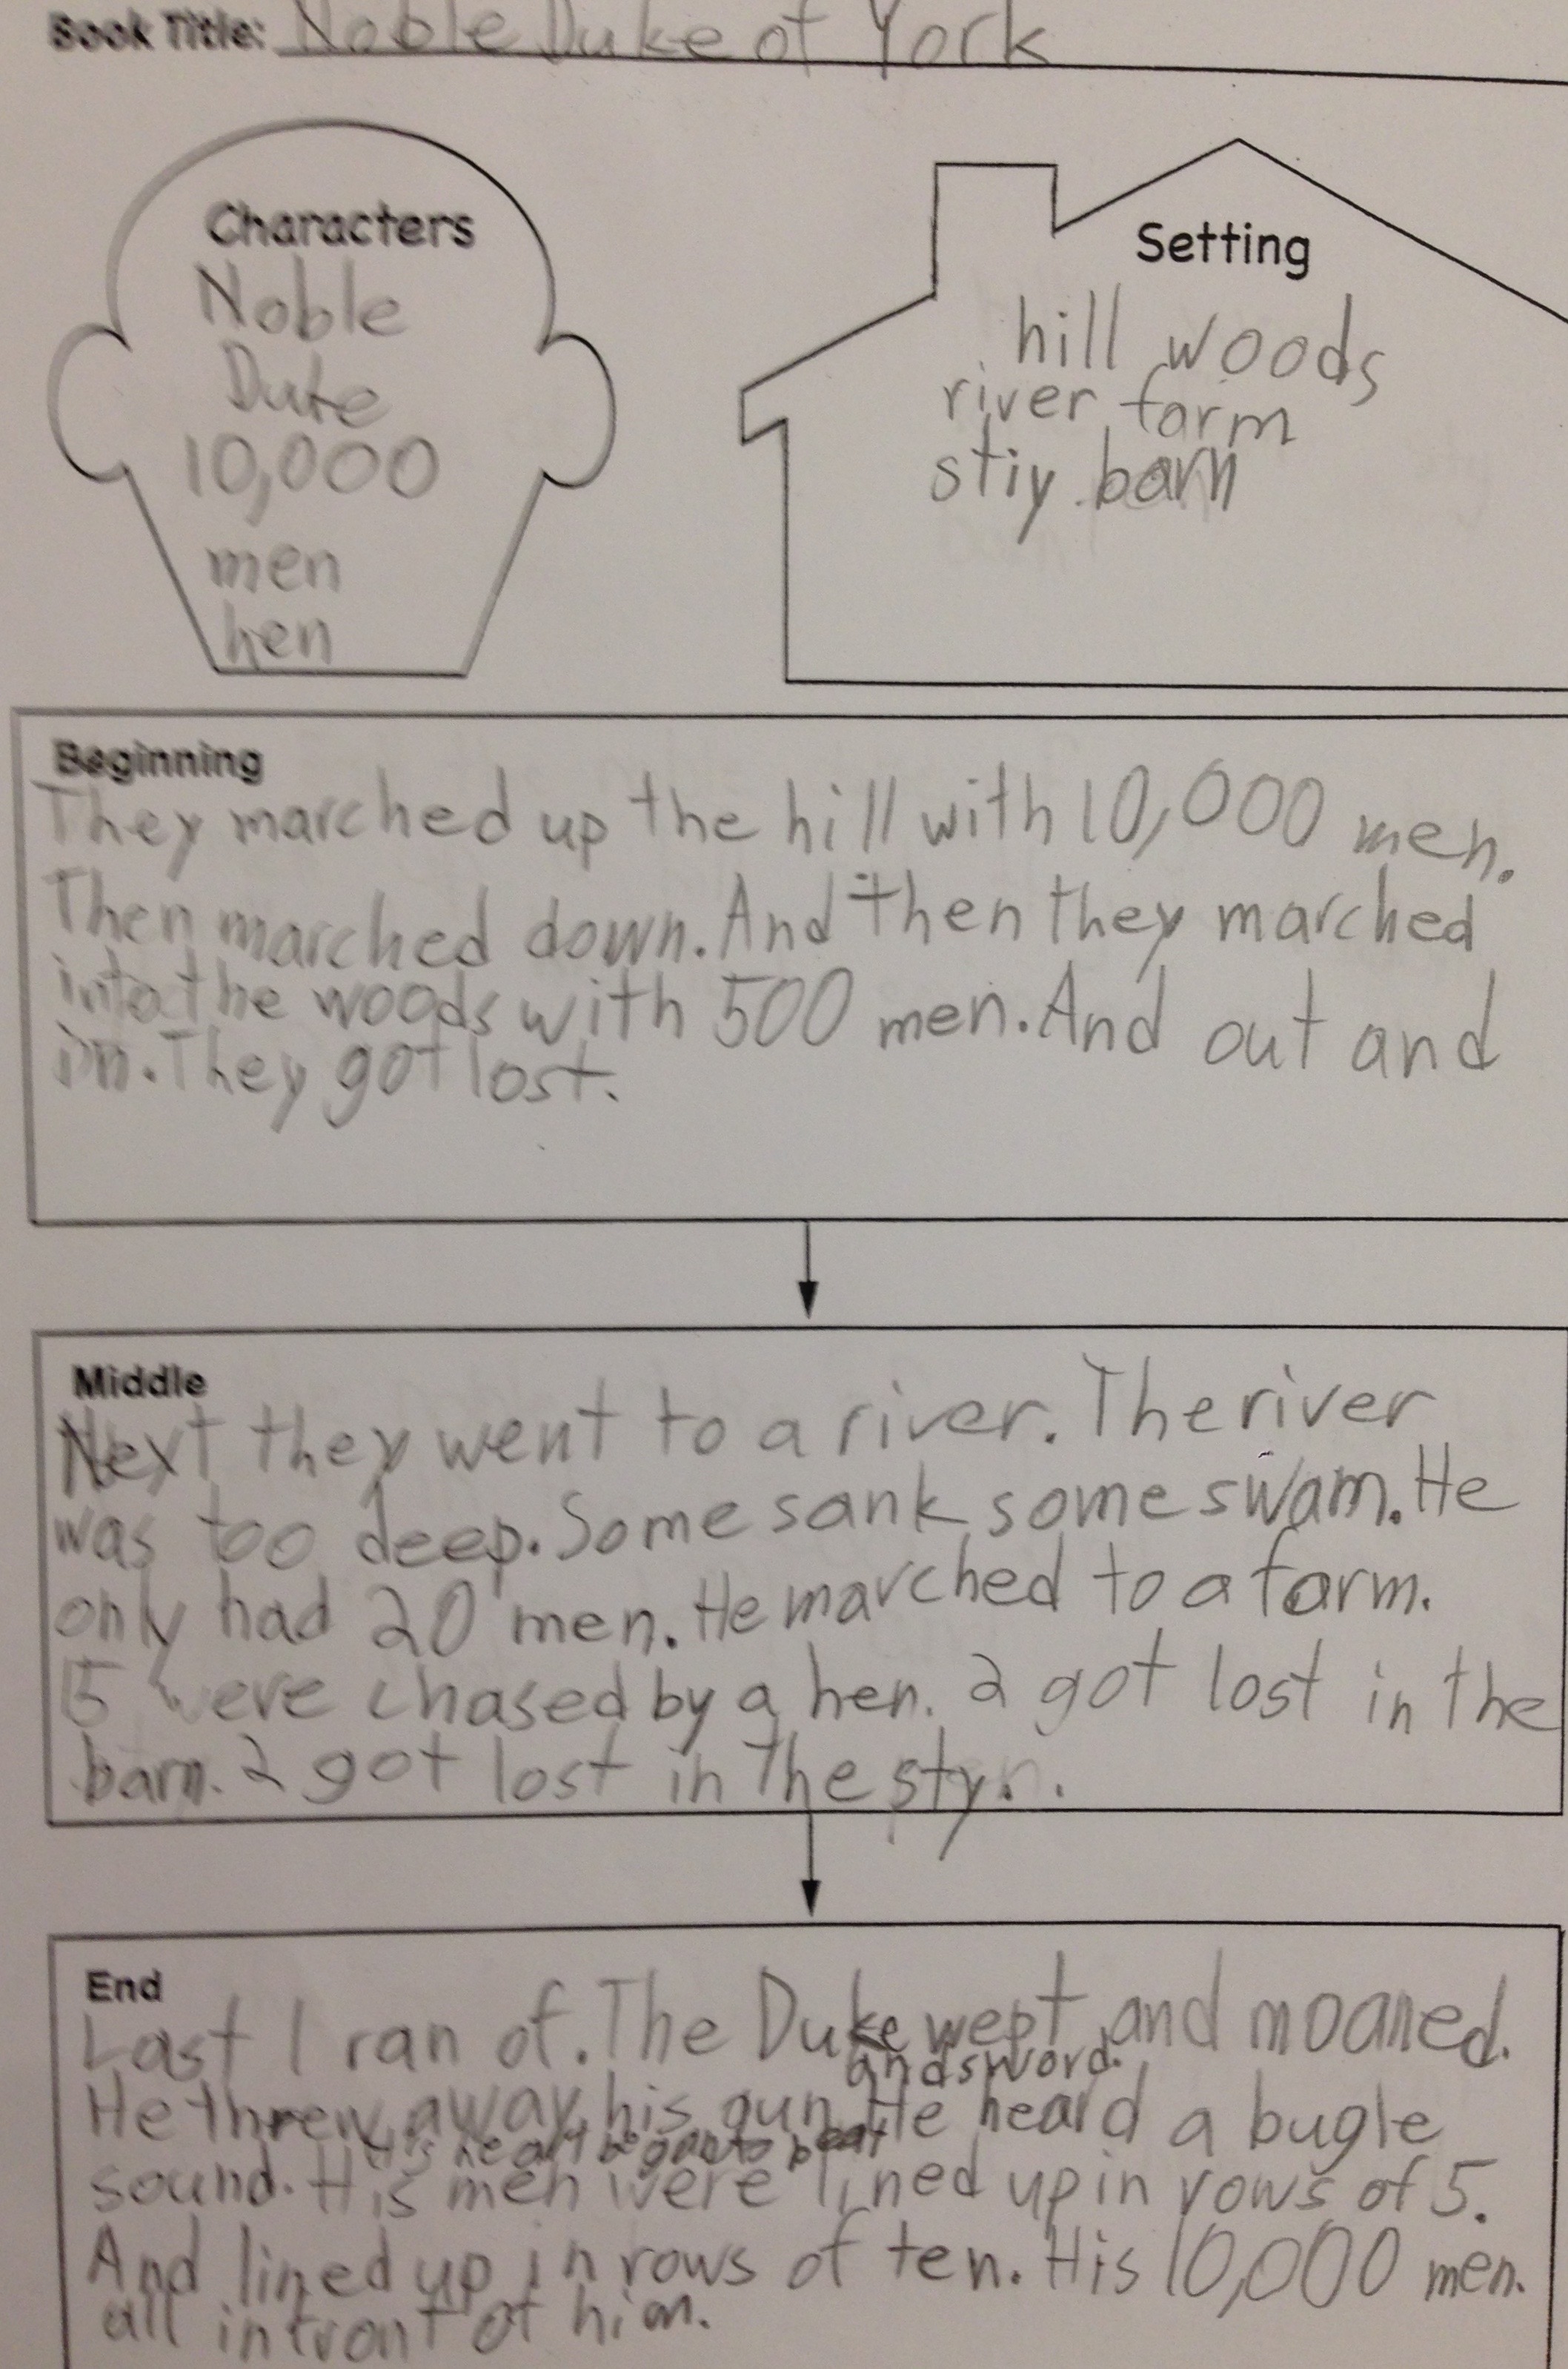 Book Title: Noble Duke of York
Characters
Noble
Duke
10,000
men
hen
Setting
hill woods
river farm
stiy barn
Beginning
They marched up the hill with 10,000 men.
Then marched down. And then they marched
into the woods with 500 men. And out and
in. They got lost.
Middle
Next they went to a river. The river
was too deep. Some sank some swam. He
only had 20 men. He marched to a farm.
15 were chased by a hen. 2 got lost in the
barn. 2 got lost in the sty.
End
Last 1 ran of. The Duke wept and moaned.
and sword.
He threw away his gun He heard a bugle
His heart began to beat
sound. His men were lined up in rows of 5.
And lined up in rows of ten. His 10,000 men.
all in front of him.